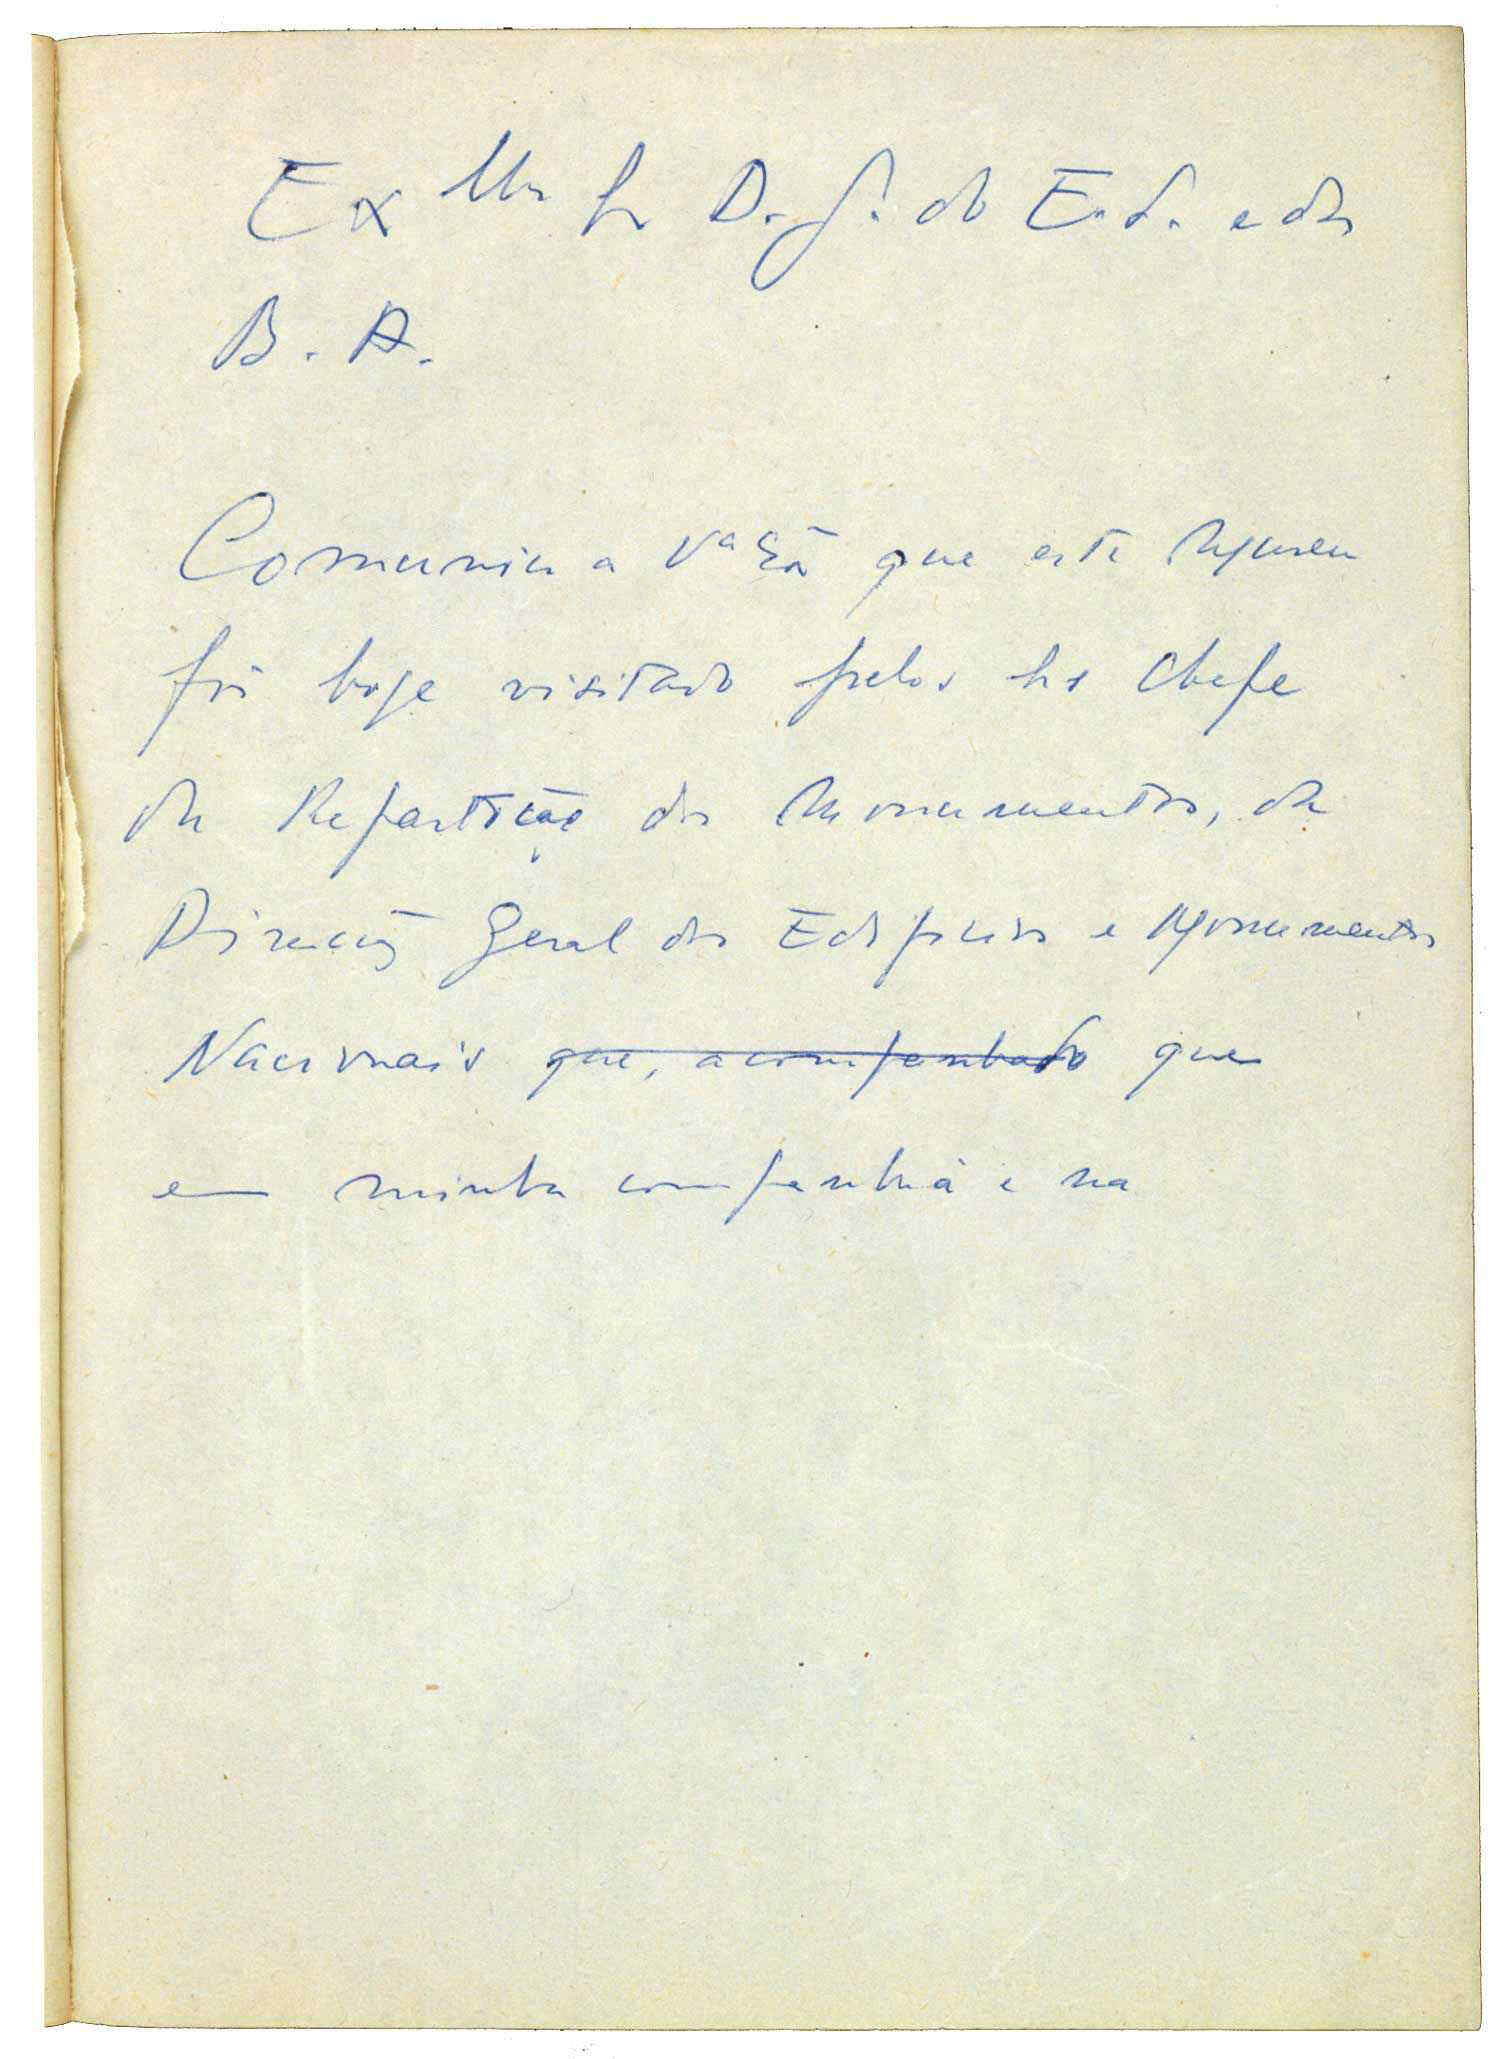 Exmo Sr D. G. do E. S. e das
B. A.
Comunico a Vª Exª que este Museu
foi hoje visitado pelos Srs Chefe
da Repartição dos Monumentos, da
Direcção Geral dos Edifícios e Monumentos
Nacionais que, acompanhado que
em minha companhia e na